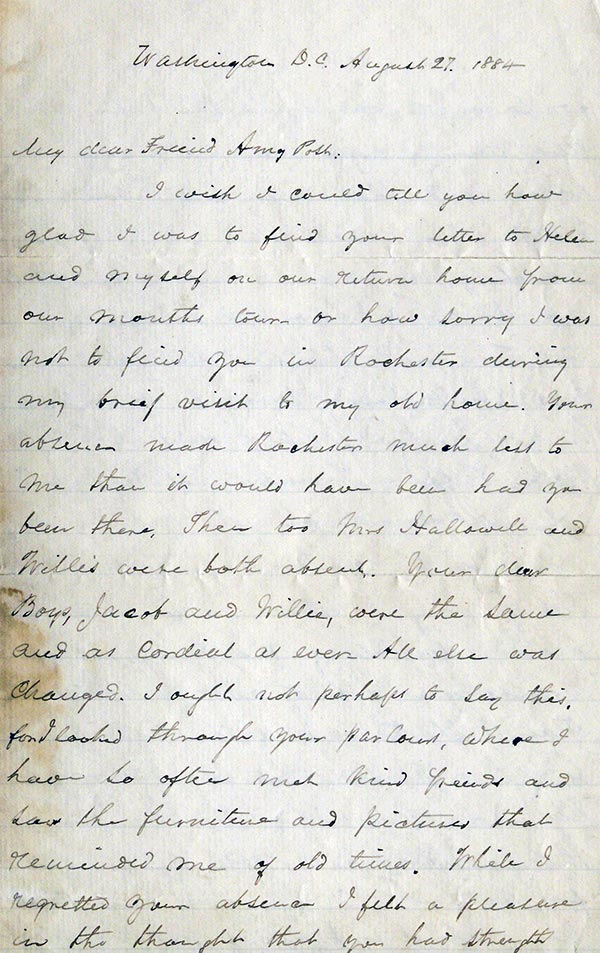 Washington D.C. August 27. 1884
My dear Friend Amy Post.
I wish I could tell you how
glad I was to find your letter to Helen
and myself on our return home from
our months tour or how sorry I was
not to find you in Rochester during
my brief visit to my old home. Your
absence made Rochester much less to
me than it would have been had you
been there. Then too Mrs Hallowell and
Willis were both absent. Your dear
Boys, Jacob and Willie, were the same
and as cordial as ever. All else was
changed. I ought not perhaps to say this,
for I looked through your parlours, where I
have so often met kind friends and
saw the furniture and pictures that
reminded me of old times. While I
regretted your absence I felt a pleasure
in the thought that you had strength